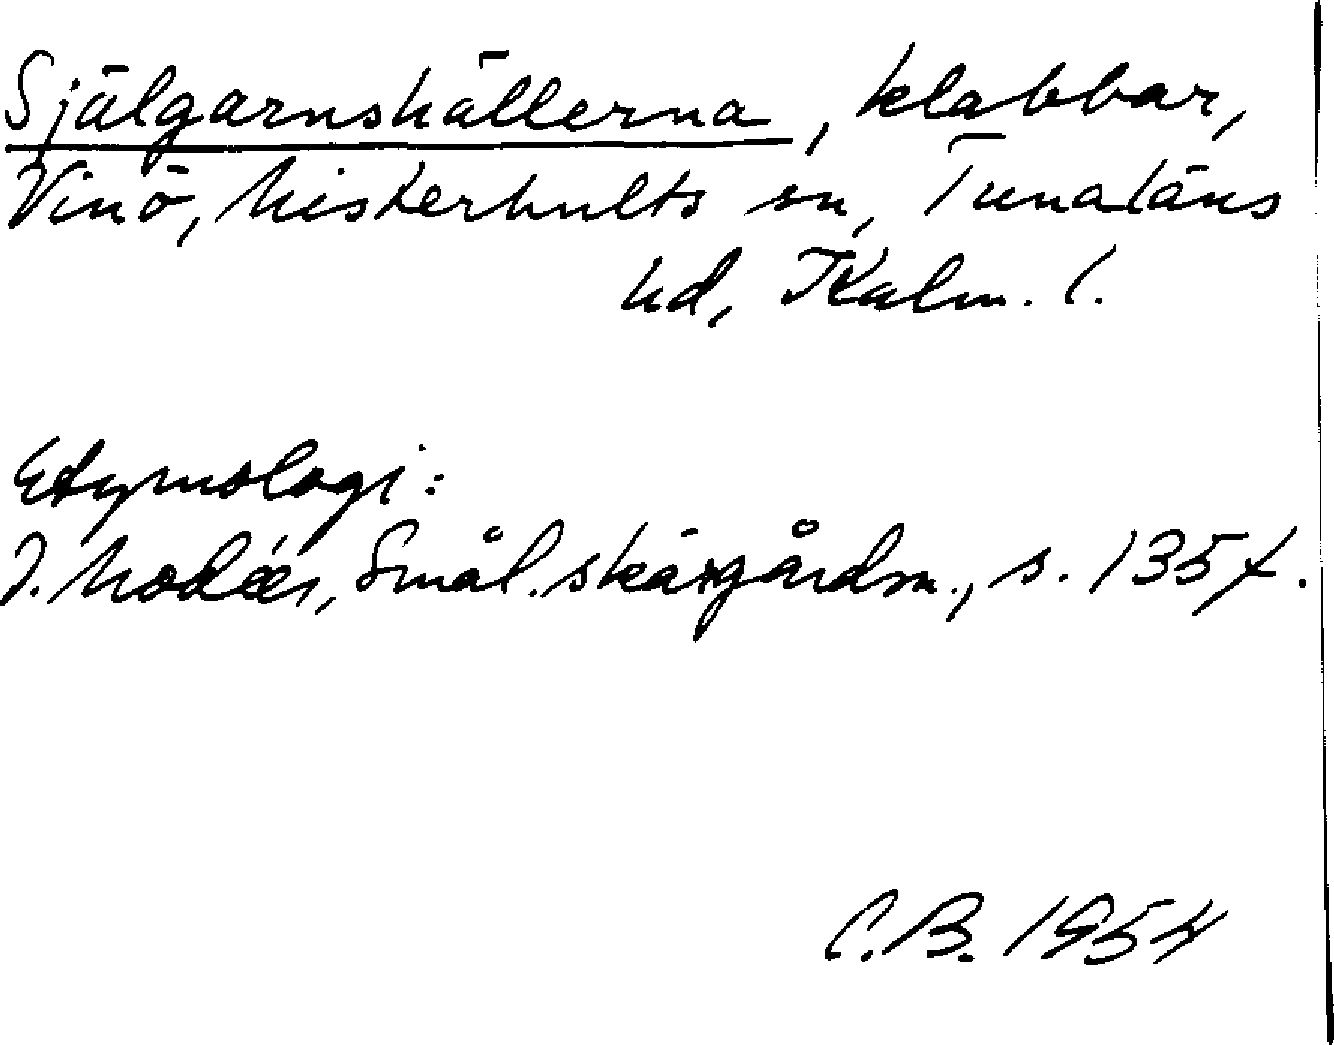 Själgarnshällerna, klabbar,
Vinö, Misterhults sn, Tunaläns
hd, Kalm. l.
Etymologi:
I. Modéer, Smål. skärgårdsn., s. 135 f.
C.B. 1954